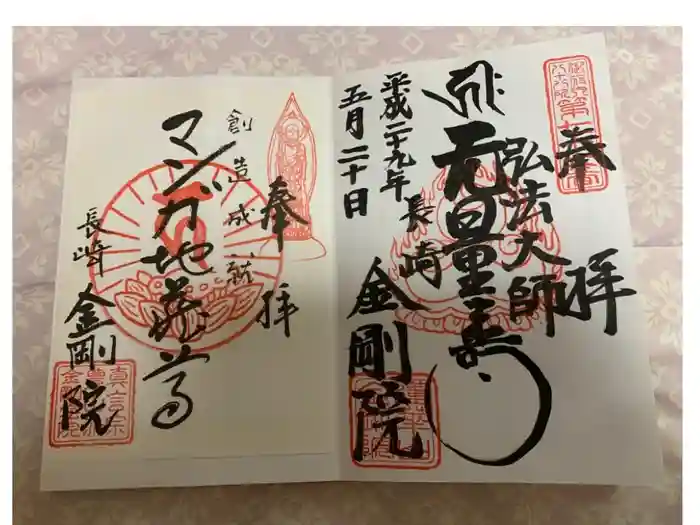 奉拝
弘法大師
無量寿
平成二十九年
五月二十日
長崎
金剛院
奉拝
創造成就
マンガ地蔵尊
長崎
金剛院